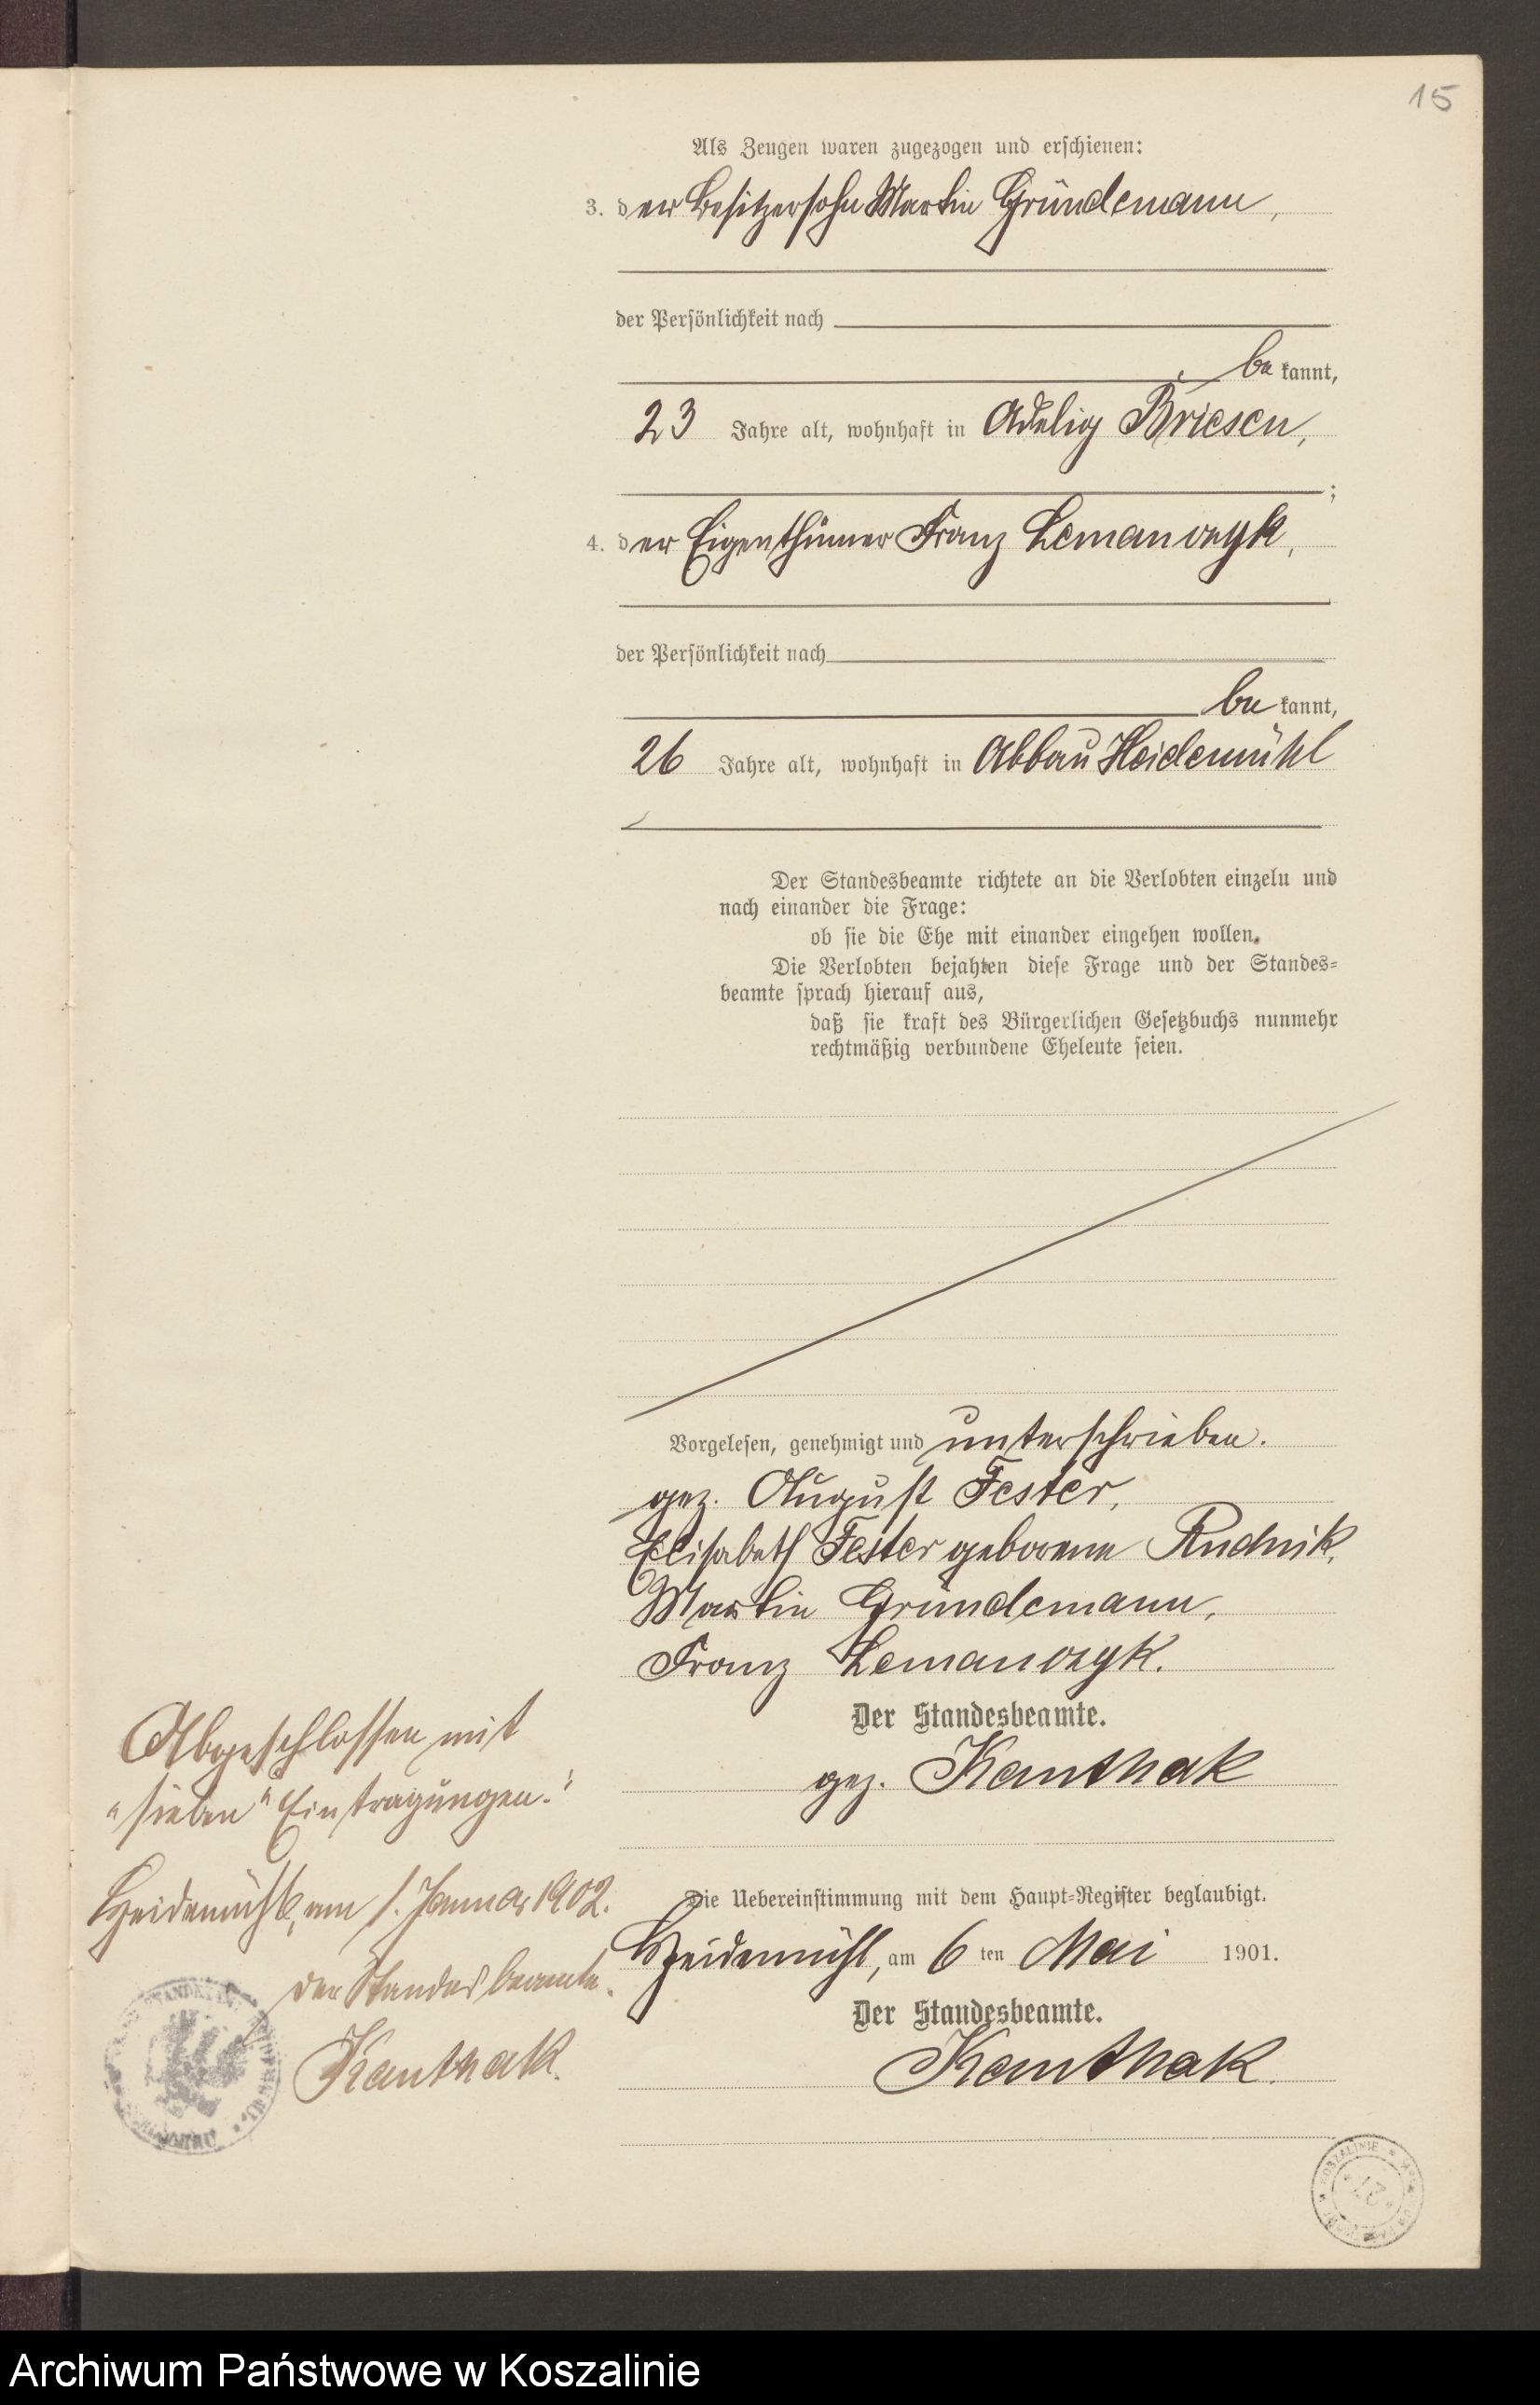 15
Als Zeugen waren zugezogen und erschienen:
3. der Besitzersohn Martin Gründemann,
der Persönlichkeit nach
be kannt,
23 Jahre alt, wohnhaft in Adelig Briesen,
;
4. der Eigenthümer Franz Lemanczyk,
der Persönlichkeit nach
be kannt,
26 Jahre alt, wohnhaft in Abbau Heidemühl
Der Standesbeamte richtete an die Verlobten einzeln und
nach einander die Frage:
ob sie die Ehe mit einander eingehen wollen.
Die Verlobten bejahten diese Frage und der Standes=
beamte sprach hierauf aus,
daß sie kraft des Bürgerlichen Gesetzbuchs nunmehr
rechtmäßig verbundene Eheleute seien.
Vorgelesen, genehmigt und unterschrieben.
gez. August Fester,
Elisabeth Fester geborene Rudnik,
Martin Gründemann,
Franz Lemanczyk.
Der Standesbeamte.
gez. Kanthak
Die Uebereinstimmung mit dem Haupt=Register beglaubigt.
Heidemühl, am 6 ten Mai 1901.
Der Standesbeamte.
Kanthak.
Abgeschlossen mit
"sieben" Eintragungen.
Heidemühl, am 1. Januar 1902.
Der Standesbeamte.
Kanthak.
Archiwum Państwowe w Koszalinie